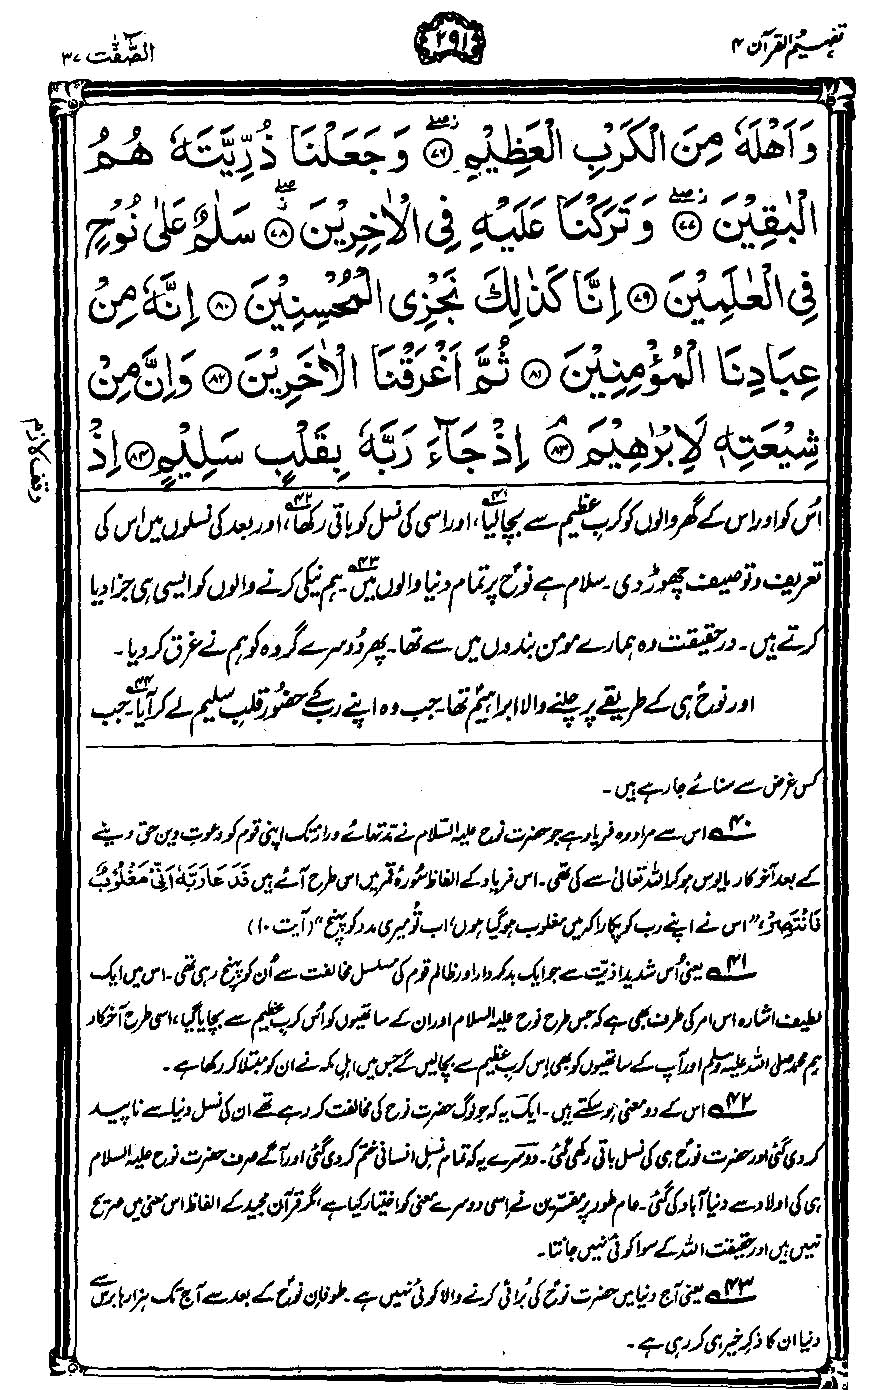 تفہیم القرآن ۴
۲۹۱
الصّٰٓفّٰت ۳۷
وَاَهْلَهٗ مِنَ الْكَرْبِ الْعَظِيْمِ ﴿۷۶﴾ وَجَعَلْنَا ذُرِّيَّتَهٗ هُمُ
الْبٰقِيْنَ ﴿۷۷﴾ وَتَرَكْنَا عَلَيْهِ فِى الْاٰخِرِيْنَ ﴿۷۸﴾ سَلٰمٌ عَلٰى نُوْحٍ
فِى الْعٰلَمِيْنَ ﴿۷۹﴾ اِنَّا كَذٰلِكَ نَجْزِى الْمُحْسِنِيْنَ ﴿۸۰﴾ اِنَّهٗ مِنْ
عِبَادِنَا الْمُؤْمِنِيْنَ ﴿۸۱﴾ ثُمَّ اَغْرَقْنَا الْاٰخَرِيْنَ ﴿۸۲﴾ وَاِنَّ مِنْ
شِيْعَتِهٖ لَاِبْرٰهِيْمَ ﴿۸۳﴾ اِذْ جَآءَ رَبَّهٗ بِقَلْبٍ سَلِيْمٍ ﴿۸۴﴾ اِذْ
وقف لازم
اُس کو اور اس کے گھر والوں کو کربِ عظیم سے بچا لیا۴۱، اور اسی کی نسل کو باقی رکھا۴۲، اور بعد کی نسلوں میں اس کی
تعریف و توصیف چھوڑ دی۔ سلام ہے نوحؑ پر تمام دنیا والوں میں۴۳۔ ہم نیکی کرنے والوں کو ایسی ہی جزا دیا
کرتے ہیں۔ درحقیقت وہ ہمارے مومن بندوں میں سے تھا۔ پھر دُوسرے گروہ کو ہم نے غرق کر دیا۔
اور نوحؑ ہی کے طریقے پر چلنے والا ابراہیمؑ تھا۔ جب وہ اپنے رب کے حضُور قلبِ سلیم لے کر آیا۴۴۔ جب
کس غرض سے سنائے جا رہے ہیں۔
۴۰ اس سے مراد وہ فریاد ہے جو حضرت نوح علیہ السّلام نے مدّتہائے دراز تک اپنی قوم کو دعوتِ دینِ حق دینے
کے بعد آخرکار مایوس ہو کر اللہ تعالیٰ سے کی تھی۔ اس فریاد کے الفاظ سُورۂ قمر میں اس طرح آئے ہیں فَدَعَا رَبَّهٗٓ اَنِّيْ مَغْلُوْبٌ
فَانْتَصِرْ، "اس نے اپنے رب کو پکارا کہ میں مغلوب ہو گیا ہوں، اب تُو میری مدد کو پہنچ" (آیت ۱۰)
۴۱ یعنی اُس شدید اذیّت سے جو ایک بدکردار اور ظالم قوم کی مسلسل مخالفت سے اُن کو پہنچ رہی تھی۔ اس میں ایک
لطیف اشارہ اس امر کی طرف بھی ہے کہ جس طرح نوح علیہ السلام اور ان کے ساتھیوں کو اُس کربِ عظیم سے بچایا گیا، اسی طرح آخرکار
ہم محمد صلی اللہ علیہ وسلم اور آپ کے ساتھیوں کو بھی اِس کربِ عظیم سے بچا لیں گے جس میں اہلِ مکہ نے ان کو مبتلا کر رکھا ہے۔
۴۲ اس کے دو معنی ہو سکتے ہیں۔ ایک یہ کہ جو لوگ حضرت نوح کی مخالفت کر رہے تھے ان کی نسل دنیا سے ناپید
کر دی گئی اور حضرت نوحؑ ہی کی نسل باقی رکھی گئی۔ دوسرے یہ کہ تمام نسلِ انسانی ختم کر دی گئی اور آگے صرف حضرت نوح علیہ السلام
ہی کی اولاد سے دنیا آباد کی گئی۔ عام طور پر مفسّرین نے اسی دوسرے معنی کو اختیار کیا ہے، مگر قرآن مجید کے الفاظ اس معنی میں صریح
نہیں ہیں اور حقیقت اللہ کے سوا کوئی نہیں جانتا۔
۴۳ یعنی آج دنیا میں حضرت نوحؑ کی بُرائی کرنے والا کوئی نہیں ہے۔ طوفانِ نوحؑ کے بعد سے آج تک ہزارہا برس سے
دنیا ان کا ذکرِ خیر ہی کر رہی ہے۔